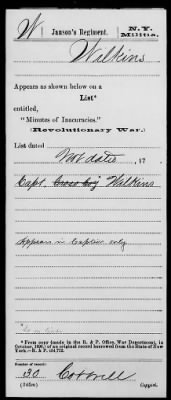 W Janson's Regiment. N.Y. Militia.
Wilkins
Appears as shown below on a
List*
entitled,
"Minutes of Inacuracies."
(Revolutionary War.)
List dated Not dated, 17
Capt. Wilkins
Appears in Caption only
*From copy (made in the R. & P. Office, War Department, in
October, 1896,) of an original record borrowed from the State of New
York.—R. & P. 434,712.
Number of record:
30 Cottrell
Copyist.